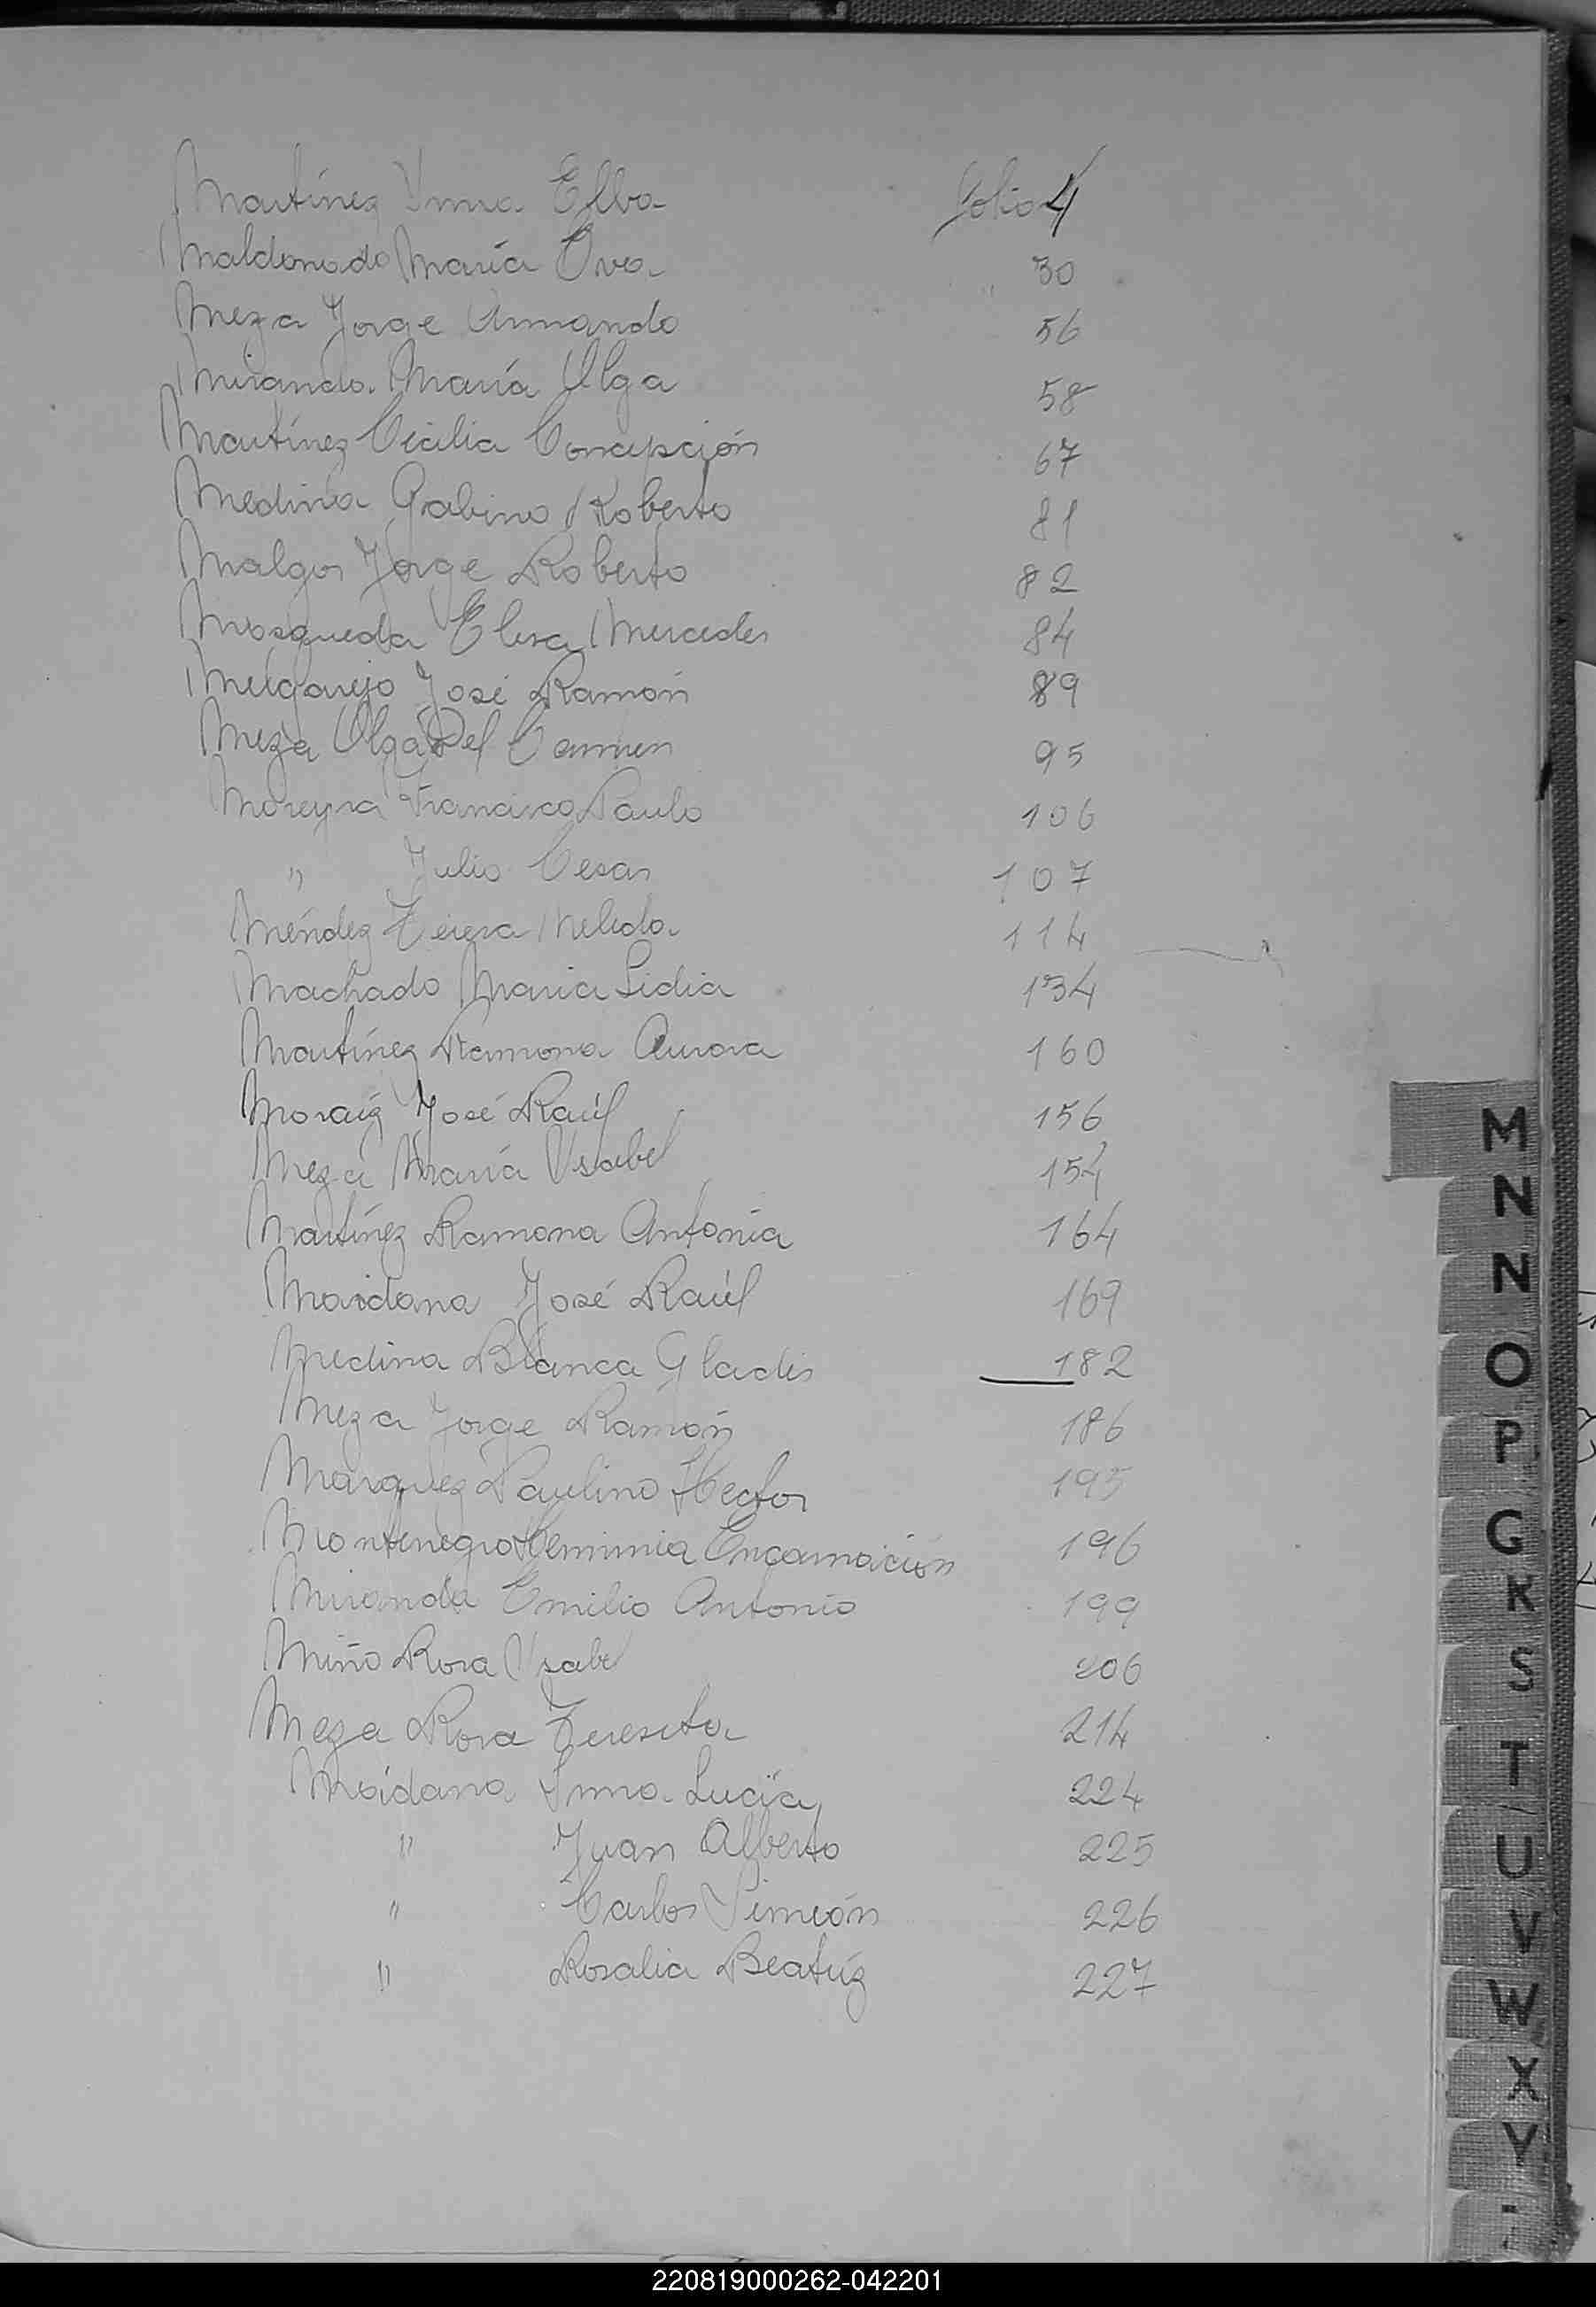 Martínez Irma Elba folio 4
Maldonado María Eva 30
Meza Jorge Armando 56
Miranda María Olga 58
Martínez Cecilia Concepción 67
Medina Gabino Roberto 81
Jorge Roberto 82
Mosqueda Elisa Mercedes 84
Melgarejo José Ramón 89
Meza Olga Del Carmen 95
Moreyra Francisco Paulo 106
" Julio Cesar 107
Méndez Teresa 114
Machado Maria Lidia 134
Martínez Ramona Aurora 160
José Raúl 156
Meza María Ysabel 154
Martínez Ramona Antonia 164
Maidana José Raúl 169
Medina Blanca Gladis 182
Meza Jorge Ramón 186
Marquez Paulino Hector 195
Montenegro Herminia Encarnación 196
Miranda Emilio Antonio 199
Miño Rosa Ysabel 206
Meza Rosa Teresita 214
Maidana Irma Lucía 224
" Juan Alberto 225
" Carlos Simeón 226
" Rosalia Beatríz 227
M
N
N
O
P
G
K
S
T
U
V
W
X
Y
220819000262-042201